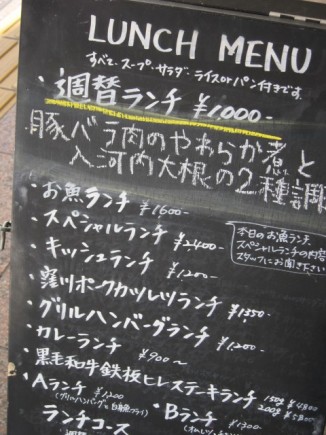 LUNCH MENU
すべて・スープ・サラダ・ライスorパン付きです。
・週替ランチ ¥1,000-
豚バラ肉のやわらか煮と
入河内大根の2種調
・お魚ランチ ¥1600-
・スペシャルランチ ¥2,400-
・キッシュランチ ¥1,200-
本日のお魚ランチ
スペシャルランチの内容
スタッフにお聞き下さい
・窪川ポークカツレツランチ ¥1350-
・グリルハンバーグランチ ¥1,200-
・カレーランチ ¥900〜
・黒毛和牛鉄板ヒレステーキランチ 150g ¥4800
200g ¥5800
・Aランチ ¥1200
(グリルハンバーグと白身魚フライ)
・Bランチ ¥1300
ランチコース